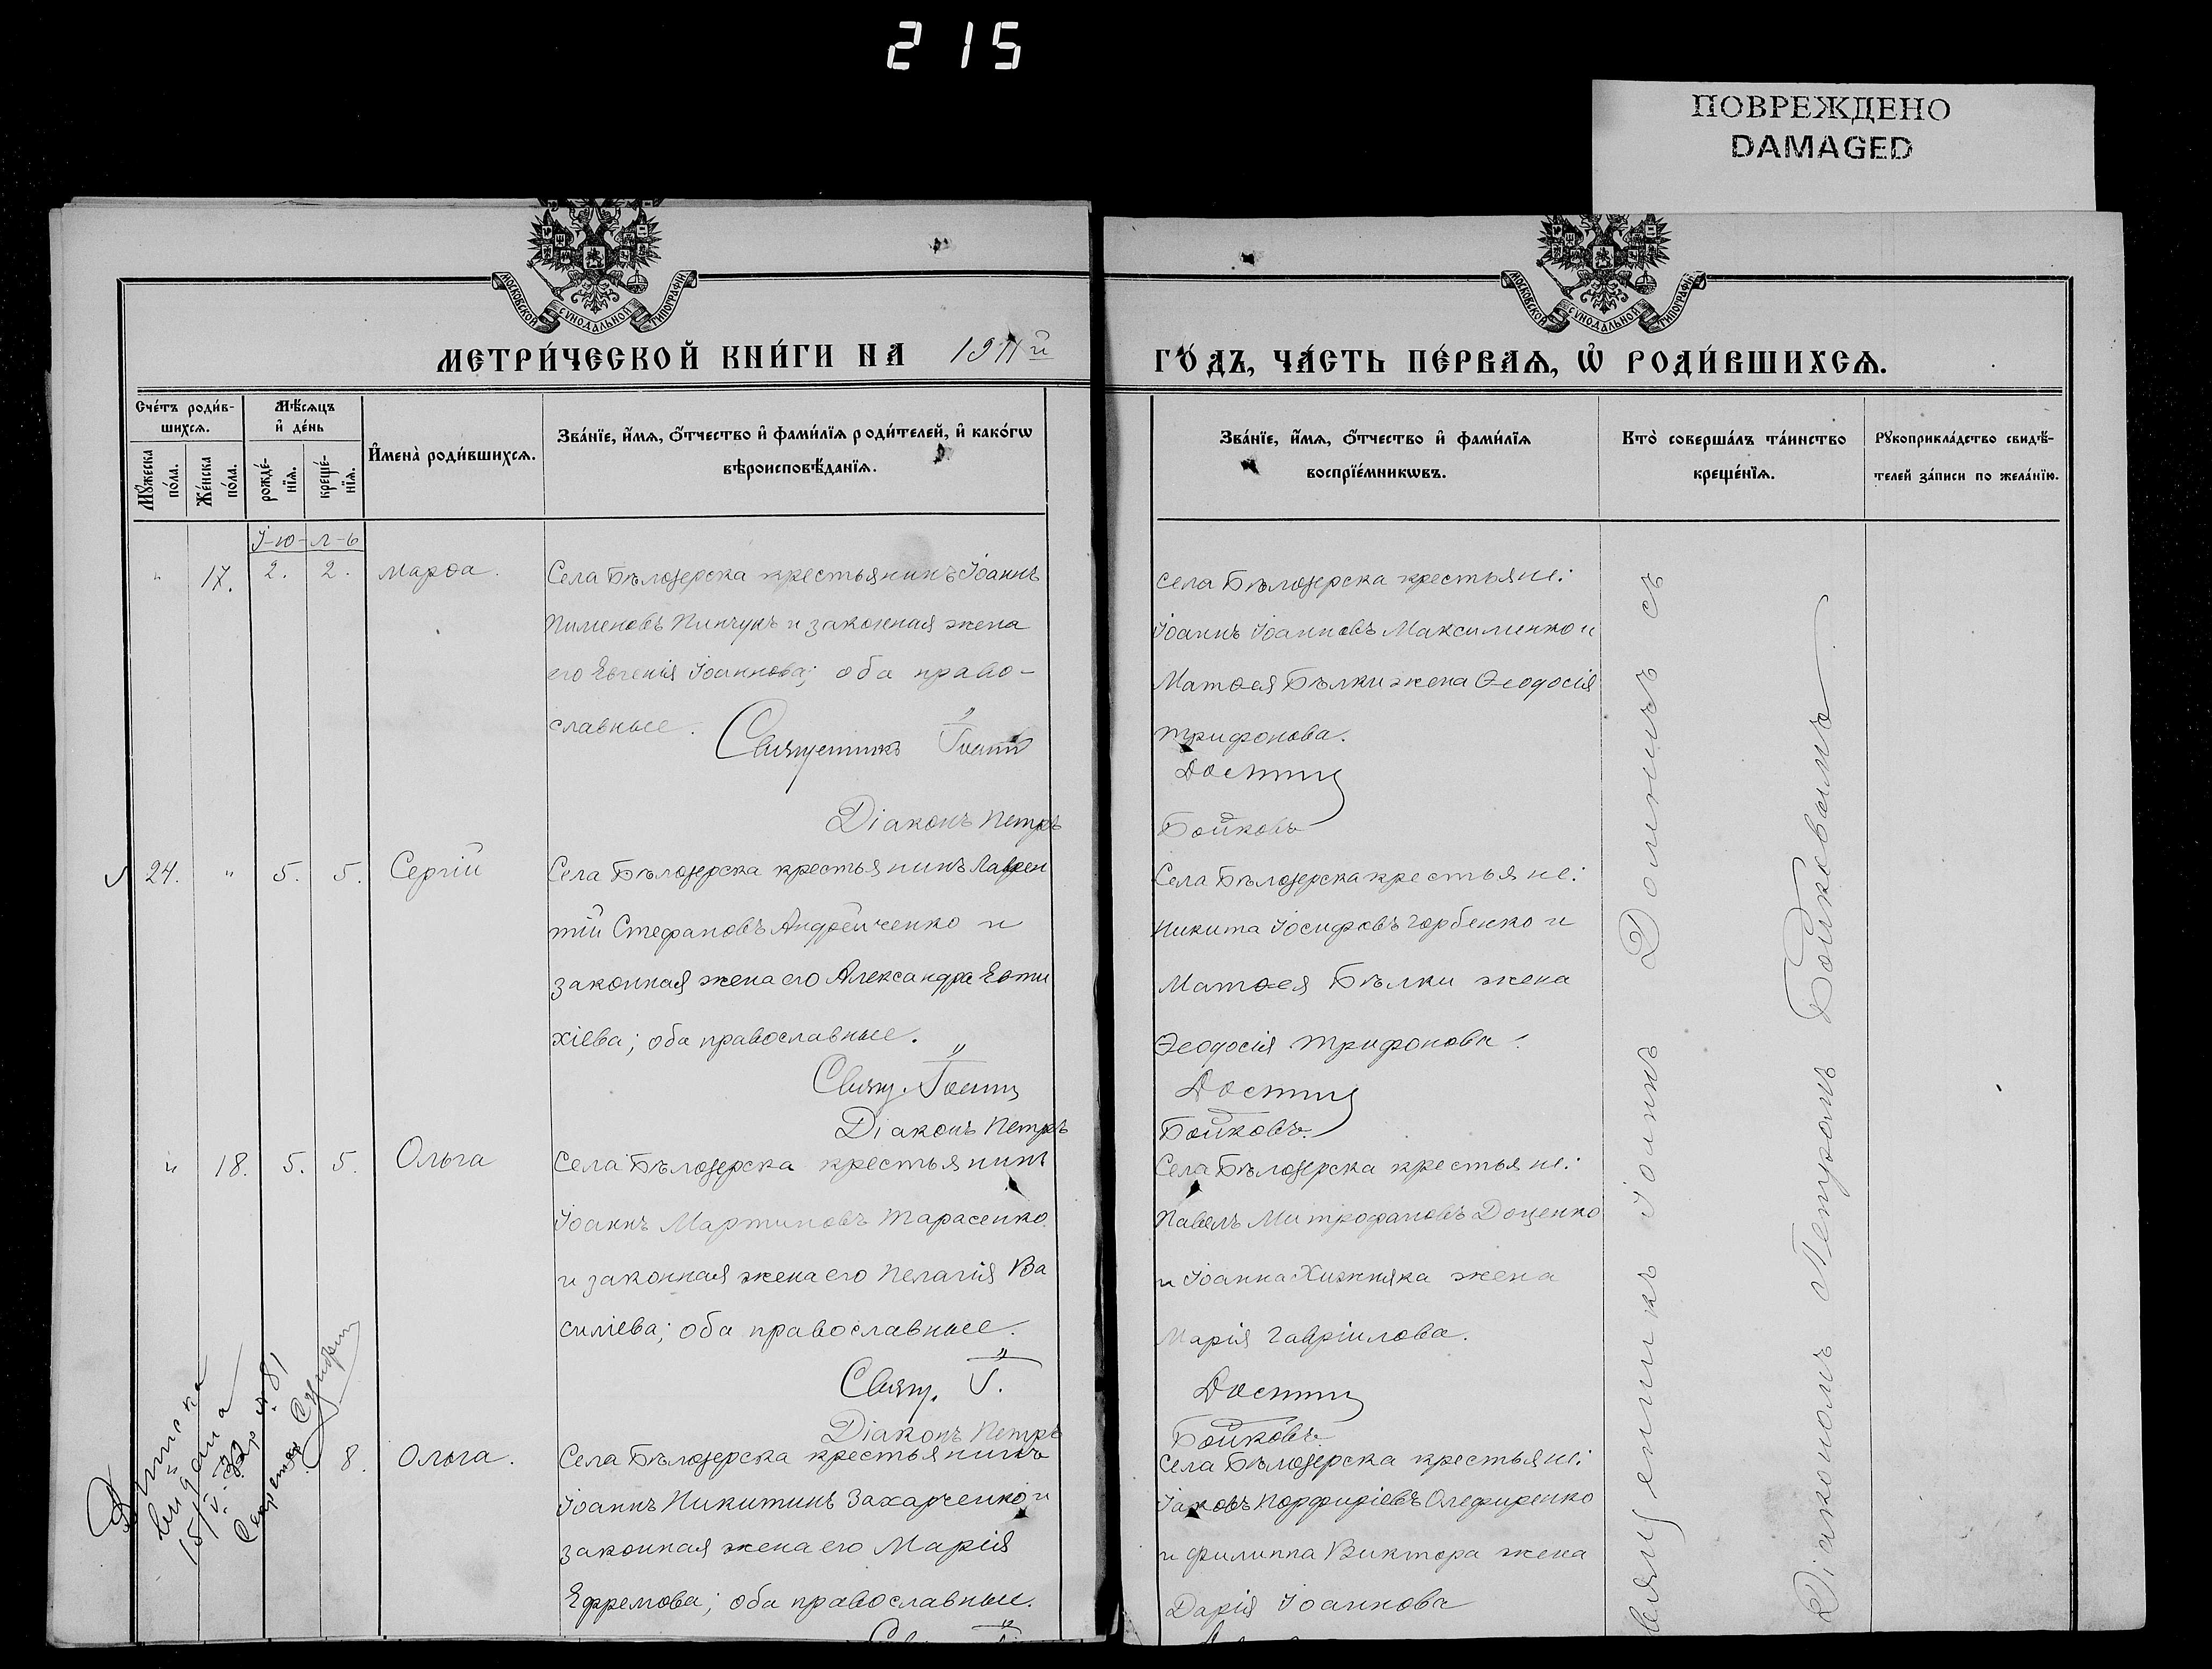 215
ПОВРЕЖДЕНО
DAMAGED
МОСКОВСКОЙ СУНОДАЛЬНОЙ ТИПОГРАФІИ
МОСКОВСКОЙ СУНОДАЛЬНОЙ ТИПОГРАФІИ
МЕТРИ́ЧЕСКОЙ КНИ́ГИ НА 1911 й
ГО́ДЪ, ЧА́СТЬ ПЕ́РВАѦ, Ѡ҆ РОДИ́ВШИХСѦ.
Сче́тъ роди́в-
шихсѧ.
Мꙋ́жеска
по́ла.
Же́нска
по́ла.
Мѣ́сѧцъ
и҆ де́нь
рожде́-
нїѧ.
креще́-
нїѧ.
И҆мена̀ роди́вшихсѧ.
Зва́нїе, и҆́мѧ, ѻ҆́тчество и҆ фами́лїѧ роди́телей, и҆ како́гѡ
вѣроисповѣ́данїѧ.
Зва́нїе, и҆́мѧ, ѻ҆́тчество и҆ фами́лїѧ
воспрїе́мникѡвъ.
Кто̀ соверша́лъ та́инство
креще́нїѧ.
Рꙋкоприкла́дство свидѣ́-
телей за́писи по жела́нїю.
І-ю-л-ь
" 17. 2. 2. Марѳа.
Села Бѣлозерска крестьянинъ Іоаннъ
Пименовъ Пинчукъ и законная жена
его Евгенія Іоаннова; оба право-
славные.
Священникъ Іоаннъ
Діаконъ Петръ
Села Бѣлозерска крестьяне:
Іоаннъ Іоанновъ Максименко и
Матѳея Бѣлки жена Ѳеодосія
Трифонова.
Бойковъ
24. " 5. 5. Сергій
Села Бѣлозерска крестьянинъ Лаврен
тій Стефановъ Андрейченко и
законная жена его Александра Евти
хіева; оба православные.
Свящ. Іоаннъ
Діаконъ Петръ
Села Бѣлозерска крестьяне:
Никита Іосифовъ Горбенко и
Матѳея Бѣлки жена
Ѳеодосія Трифонова.
Бойковъ.
" 18. 5. 5. Ольга
Села Бѣлозерска крестьянинъ
Іоаннъ Мартиновъ Тарасенко
и законная жена его Пелагія Ва
силіева; оба православные.
Свящ. І.
Діаконъ Петръ
Села Бѣлозерска крестьяне:
Павелъ Митрофановъ Доценко
и Іоанна Хижняка жена
Марія Гавріилова.
Бойковъ.
8. Ольга.
Села Бѣлозерска крестьянинъ
Іоаннъ Никитинъ Захарченко и
законная жена его Марія
Ефремова; оба православные.
Села Бѣлозерска крестьяне:
Іаковъ Порфиріевъ Олефиренко
и Филиппа Виктора жена
Дарія Іоаннова
Выписка
видана
Секретар
вященникъ Іоаннъ съ
Діакономъ Петромъ Бойковымъ